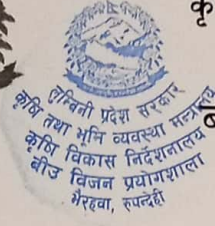 कृ
लुम्बिनी प्रदेश सरकार
कृषि तथा भूमि व्यवस्था मन्त्रालय
कृषि विकास निर्देशनालय
बीउ विजन प्रयोगशाला
भैरहवा, रुपन्देही